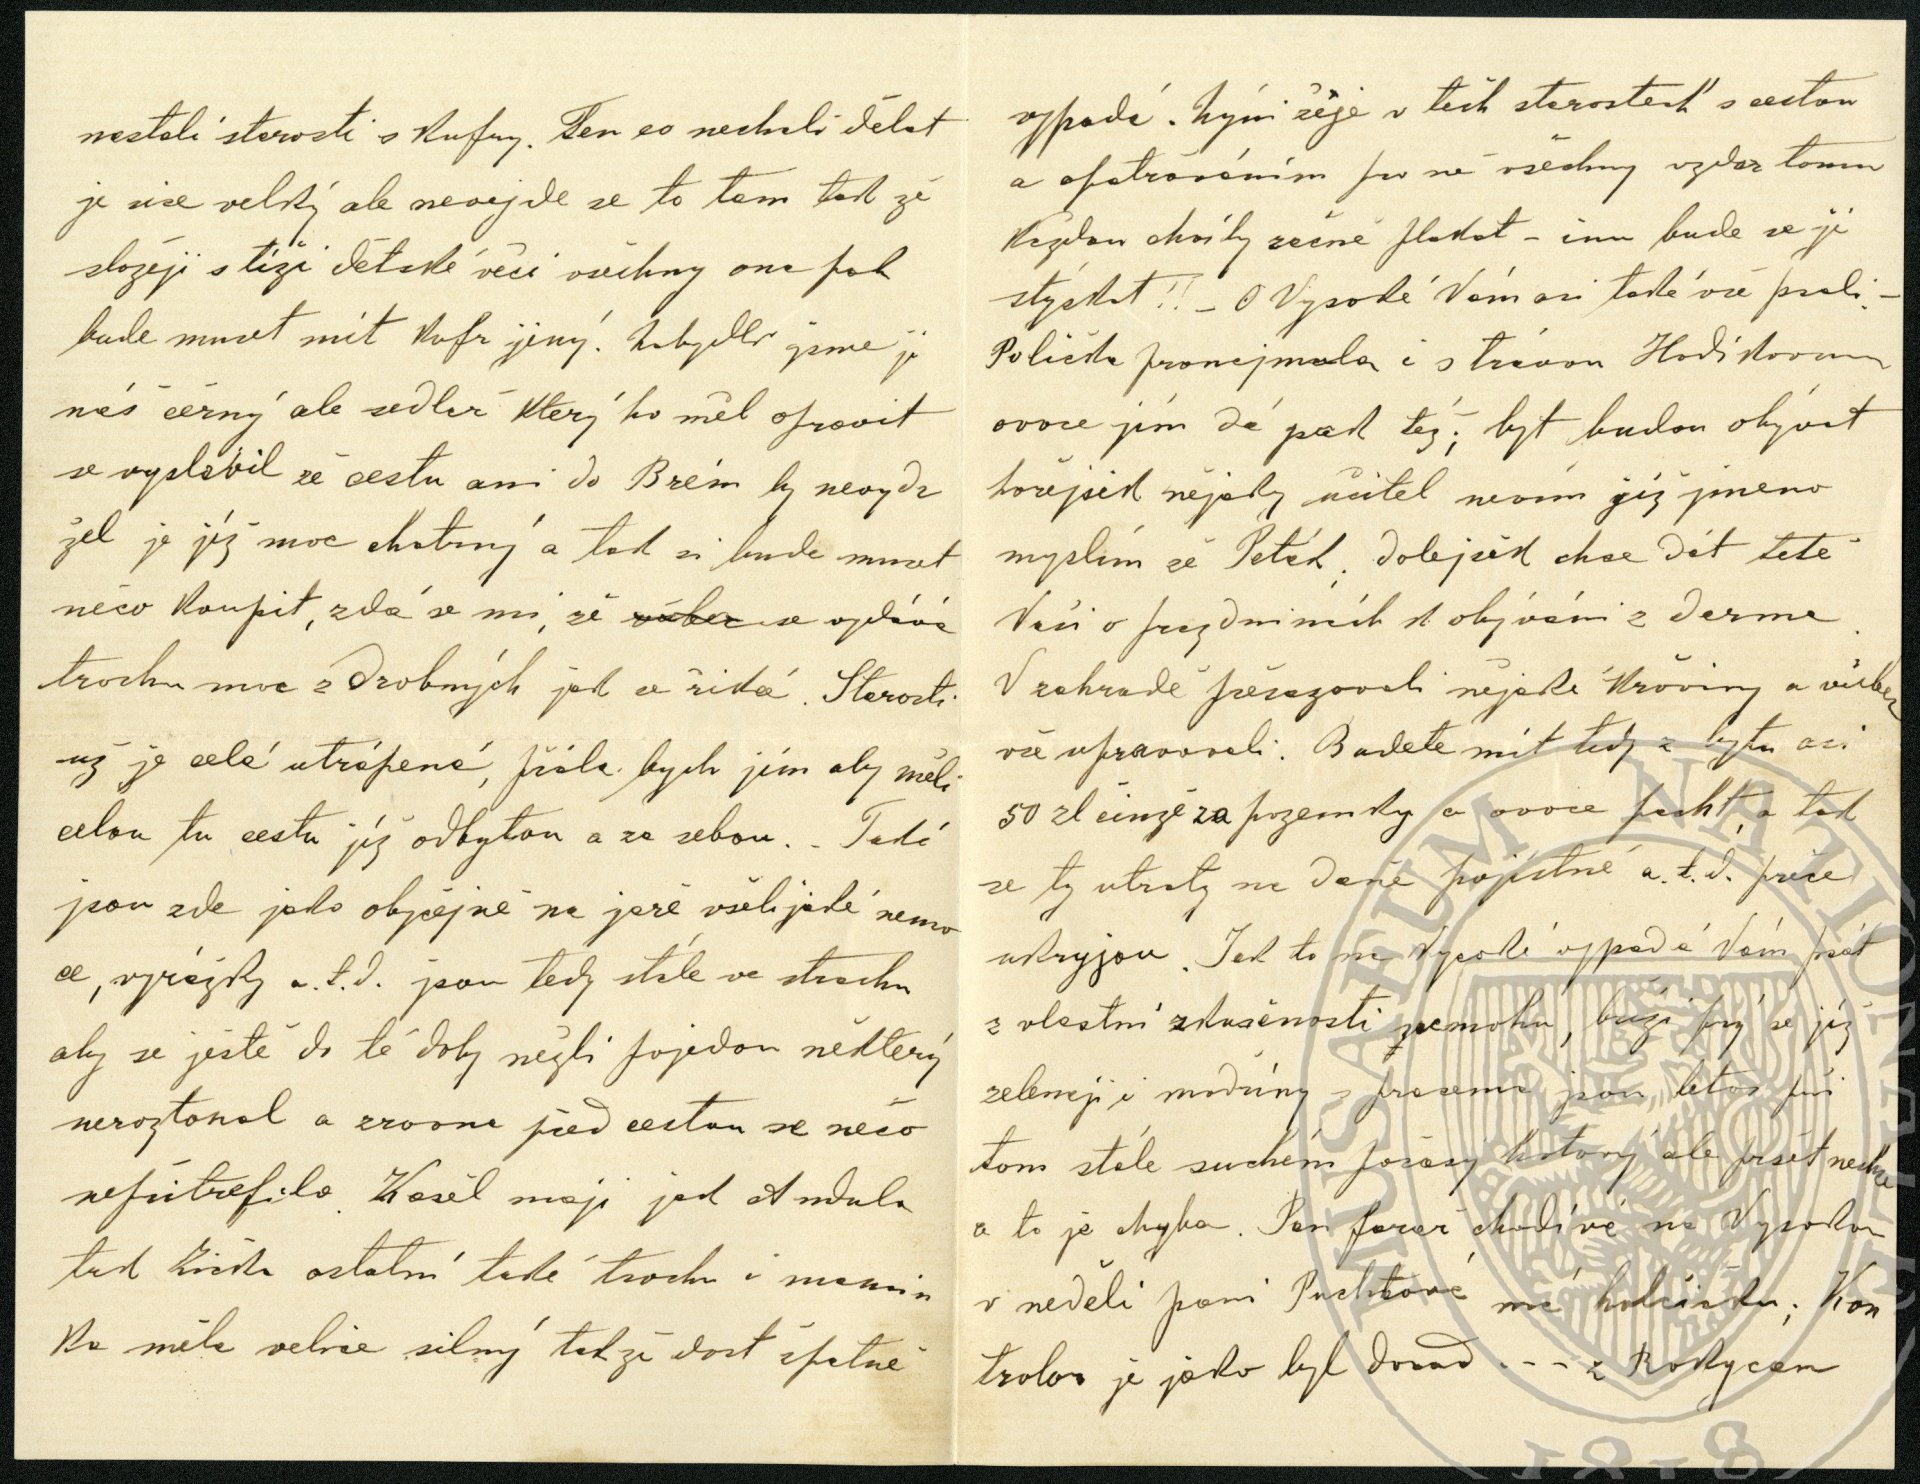 nastali starosti s kufry. Ten co nechali dělat
je sice velký ale nevejde se to tam tak že
složeji s tíži dětské věci všechny ona pak
bude muset mít kufr jiný. Nabydli jsme ji
náš černý ale sedlař který ho měl spravit
se vyslovil že cestu ani do Brém by nevydr
žel je již moc chatrný a tak si bude muset
něco koupit, zdá se mi, že vůbec se vydává
trochu moc z drobných jak se řiká. Starosti
už je celá utrápená, přála bych jim aby měli
celou tu cestu již odbytou a za sebou. – Také
jsou zde jako obyčejně na jaře všelijaké nemo
ce, vyrážky a.t.d. jsou tedy stále ve strachu
aby se ještě do té doby nežli pojedou některý
neroztonal a zrovna před cestou se něco
nepřitrefilo. Kašel maji jak Andula
tak ostatní také trochu i mamin
ka měla velice silný takže dost špatně
vypadá. Nyni žije v těch starostech s cestou
a opatrováním pro ně všechny vzdor tomu
každou chvíly začně plakat – inu bude se ji
stýskat!! – O Vysoké Vám asi také vše psali –
Polička pronejmula i s trávou Hodíkovum
ovoce jim dá pak též; byt budou obývat
hořejšek nějaky učitel nevím již jmeno
myslím že Peták, dolejšek chce dát tetě
Vaši o prazdninách k obývání z darma.
V zahradě přesazovali nějaké křoviny a vůbec
vše upravovali. Budete mít tedy z bytu asi
50 zl činže za pozemky a ovoce pacht, a tak
se ty utraty na daně pojistné a.t.d. přece
ukryjou. Jak to na Vysoké vypadá Vám psát
z vlastní zkušenosti nemohu, břízi prý se již
zelenaji i modřiny s prasema jsou letos při
tom stále suchém počasy hotový ale pršet nechce
a to je chyba. Pan farař chodívá na Vysokou
v neděli pani Puchtové má holčičku; Kon
trolor je jako byl dosud --- z Rokycan